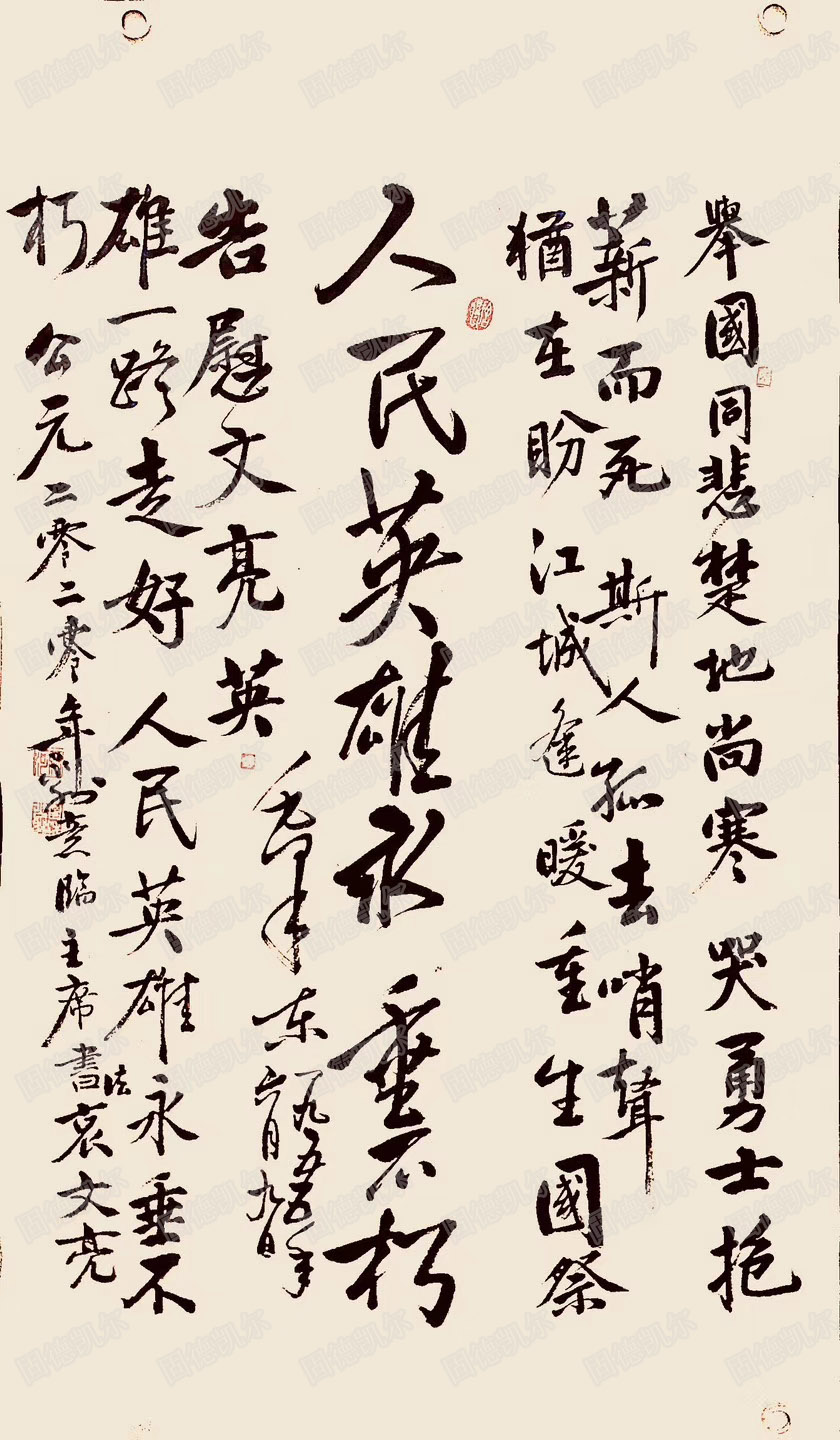 舉國同悲楚地尚寒 哭勇士抱
薪而死 斯人孤去哨聲
猶在盼江城逢暖重生國祭
人民英雄永垂不朽
毛澤东
一九五五年
六月九日
告慰文亮英
雄一路走好 人民英雄永垂不
朽 公元二零二零年
意臨主席書法哀文亮
固德凯尔